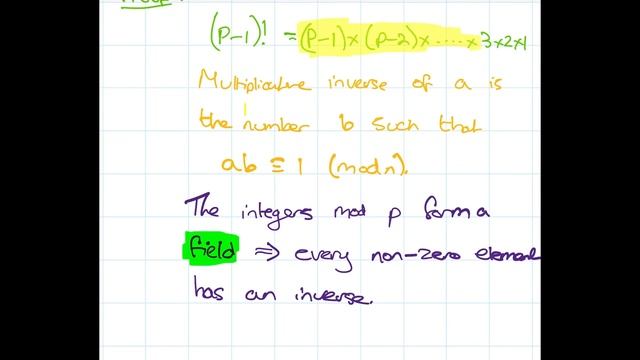 (p-1)! = (p-1)×(p-2)×.....×3×2×1
Multiplicative inverse of a is
the number b such that
ab ≡ 1 (mod n).
The integers mod p form a
field ⇒ every non-zero element
has an inverse.